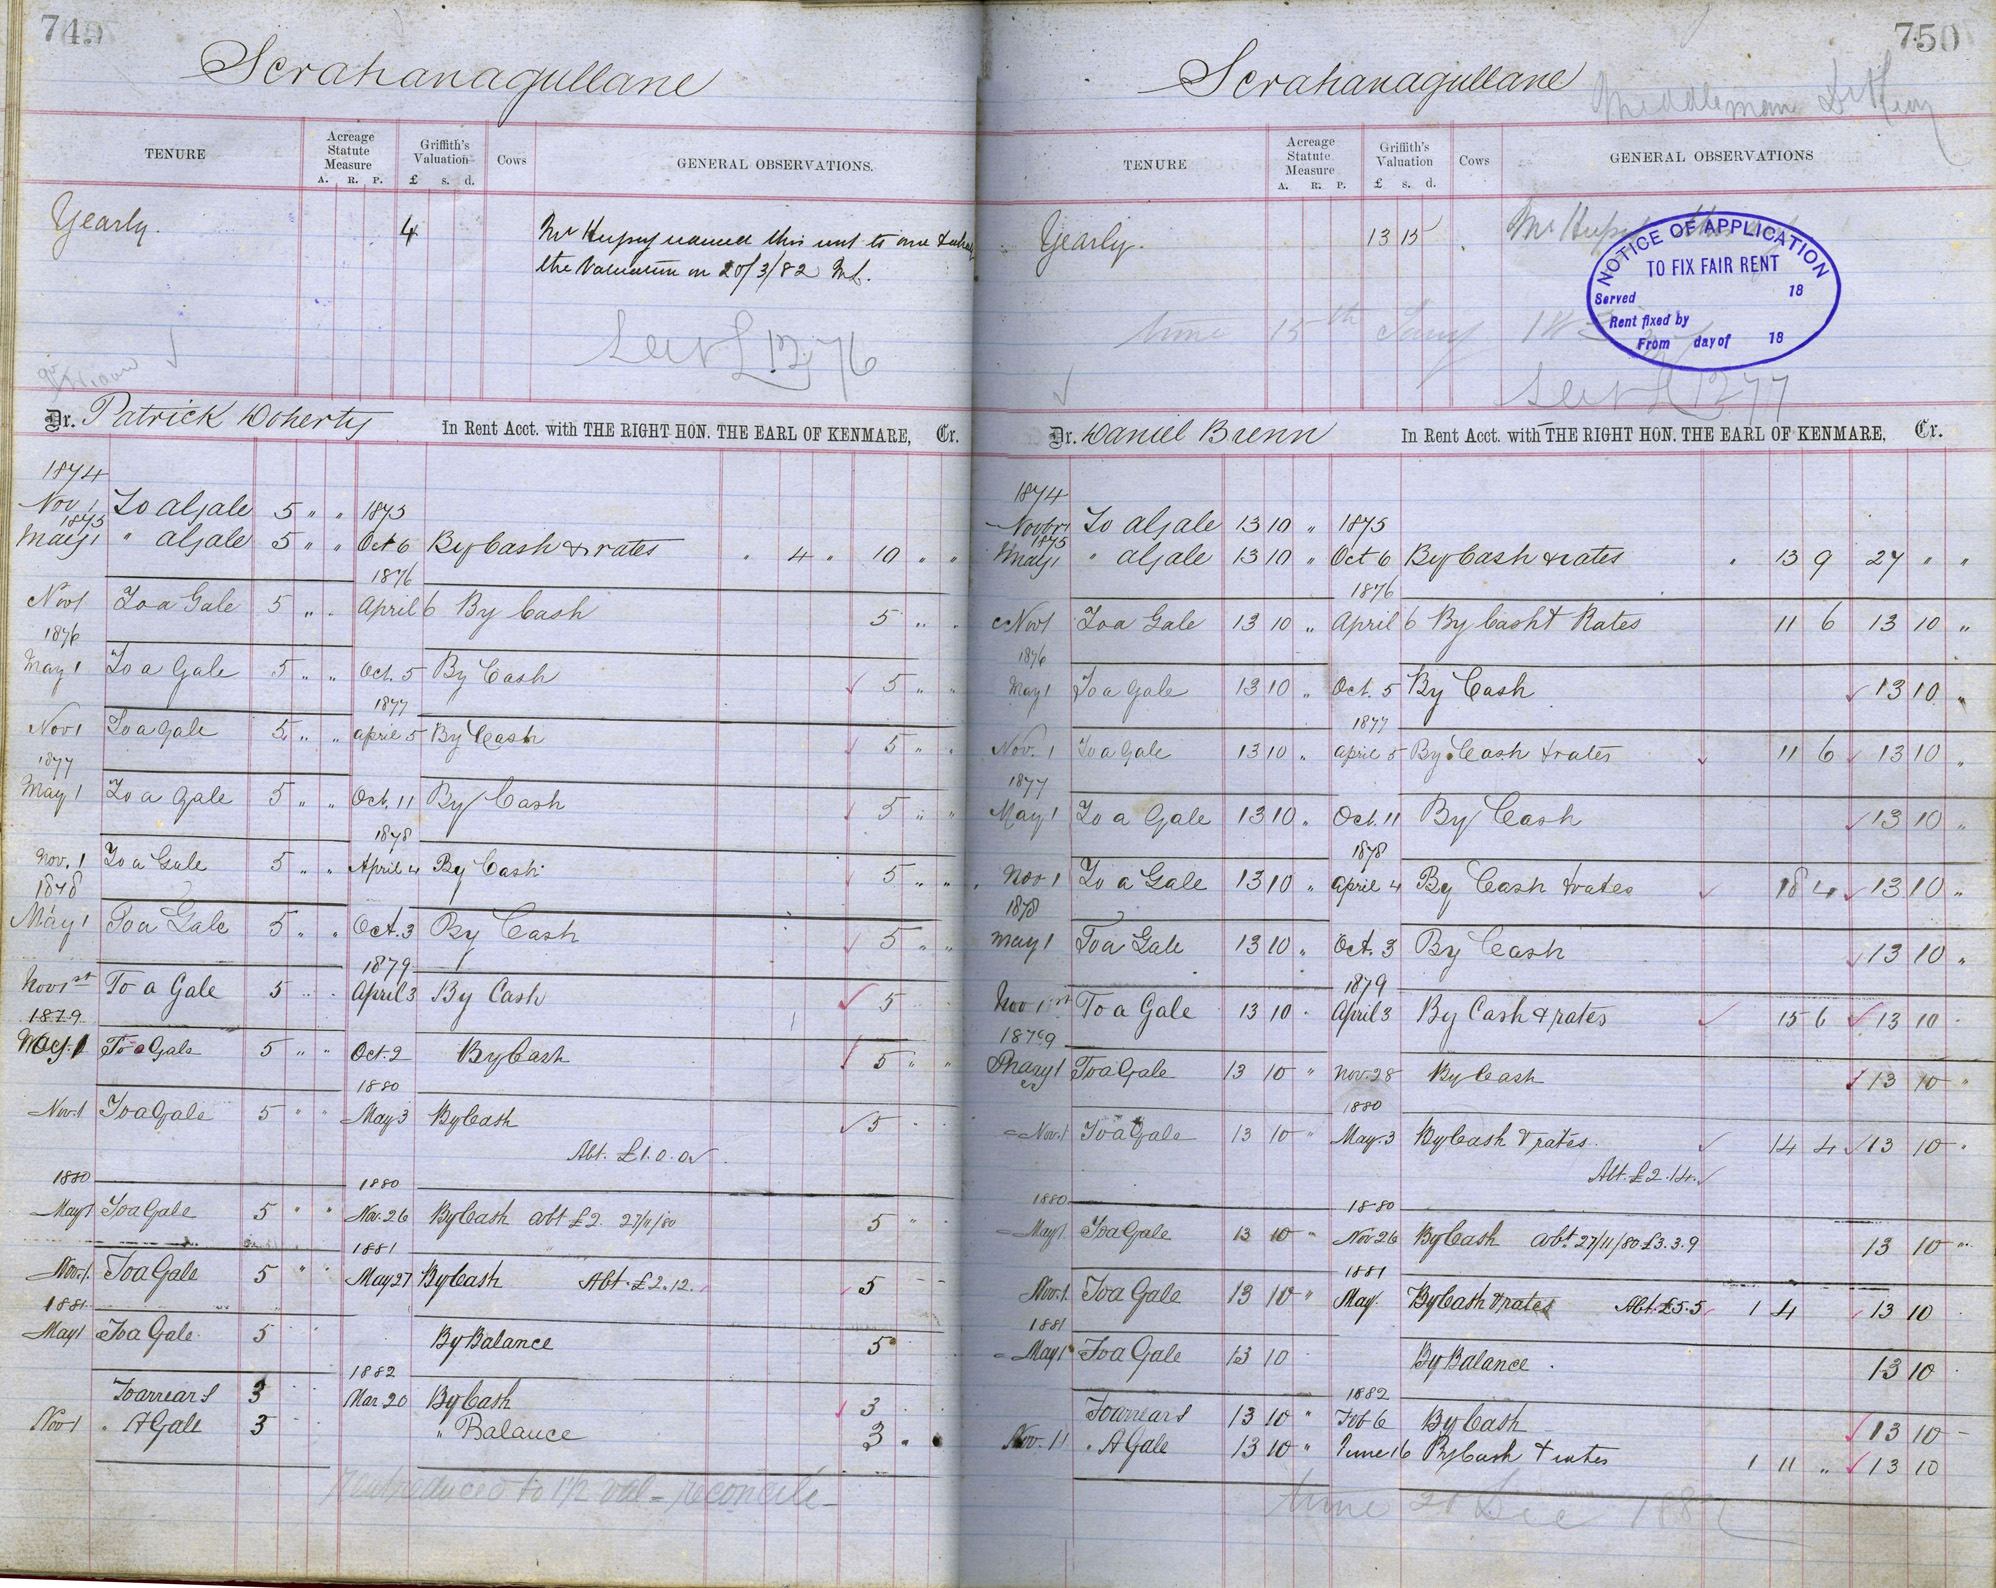 749
Scrahanagullane
TENURE
Acreage Statute Measure
A. R. P.
Griffith's Valuation
£ s. d.
Cows
GENERAL OBSERVATIONS.
Yearly.
4
Mr Hussey reduced this rent to one & a half
the Valuation on 20/3/82
76
Dr. Patrick Doherty In Rent Acct. with THE RIGHT HON. THE EARL OF KENMARE, Cr.
1874
Nov 1 To a Gale 5 " " 1875
1875
May 1 " a Gale 5 " " Oct 6 By Cash & rates " 4 " 10 " "
1876
Nov 1 To a Gale 5 " " April 6 By Cash 5 " "
1876
May 1 To a Gale 5 " " Oct. 5 By Cash 5 " "
1877
Nov 1 To a Gale 5 " " April 5 By Cash 5 " "
1877
May 1 To a Gale 5 " " Oct. 11 By Cash 5 " "
1878
Nov. 1 To a Gale 5 " " April 4 By Cash 5 " "
1878
May 1 To a Gale 5 " " Oct. 3 By Cash 5 " "
1879
Nov 1st To a Gale 5 " " April 3 By Cash 5
1879
May 1 To a Gale 5 " " Oct. 2 By Cash 5 " "
1880
Nov. 1 To a Gale 5 " " May 3 By Cash 5
Abt. £1.0.0
1880 1880
May 1 To a Gale 5 " " Nov. 26 By Cash abt £2. 27/11/80 5 "
1881
Nov. 1. To a Gale 5 " " May 27 By Cash Abt. £2.12. 5 - -
1881
May 1 To a Gale 5 By Balance 5
1882
To arrears 3 Mar 20 By Cash 3
Nov 1 " A Gale 3 " Balance 3
Rent reduced to 1 1/2 val - reconcile -
750
Scrahanagullane
Middleman
TENURE
Acreage Statute Measure
A. R. P.
Griffith's Valuation
£ s. d.
Cows
GENERAL OBSERVATIONS
Yearly.
13 15
Mr Hussey
NOTICE OF APPLICATION
TO FIX FAIR RENT
Served 18
Rent fixed by
From day of 18
15th
77
Dr. Daniel Brenn In Rent Acct. with THE RIGHT HON. THE EARL OF KENMARE, Cr.
1874
Novbr 1 To a Gale 13 10 " 1875
1875
May 1 " a Gale 13 10 " Oct 6 By Cash & rates " 13 9 27 " "
1876
Nov 1 To a Gale 13 10 " April 6 By Cash & Rates 11 6 13 10 "
1876
May 1 To a Gale 13 10 " Oct. 5 By Cash 13 10 "
1877
Nov. 1 To a Gale 13 10 " April 5 By Cash & rates 11 6 13 10 "
1877
May 1 To a Gale 13 10 " Oct. 11 By Cash 13 10 "
1878
Nov 1 To a Gale 13 10 " April 4 By Cash & rates 18 4 13 10 "
1878
May 1 To a Gale 13 10 " Oct. 3 By Cash 13 10 "
1879
Nov 1st To a Gale 13 10 " April 3 By Cash & rates 15 6 13 10
1879
May 1 To a Gale 13 10 " Nov. 28 By Cash 13 10 "
1880
Nov. 1 To a Gale 13 10 " May 3 By Cash & rates. 14 4 13 10 "
Abt. £2.14.
1880 1880
May 1 To a Gale 13 10 " Nov 26 By Cash abt. 27/11/80 £3.3.9 13 10 "
1881
Nov. 1. To a Gale 13 10 " May. By Cash & rates Abt. £5.5 1 4 13 10
1881
May 1 To a Gale 13 10 By Balance 13 10
1882
To arrears 13 10 " Feb 6 By Cash 13 10 -
Nov. 11 " A Gale 13 10 " June 16 By Cash & rates 1 11 " 13 10
Dec 1882